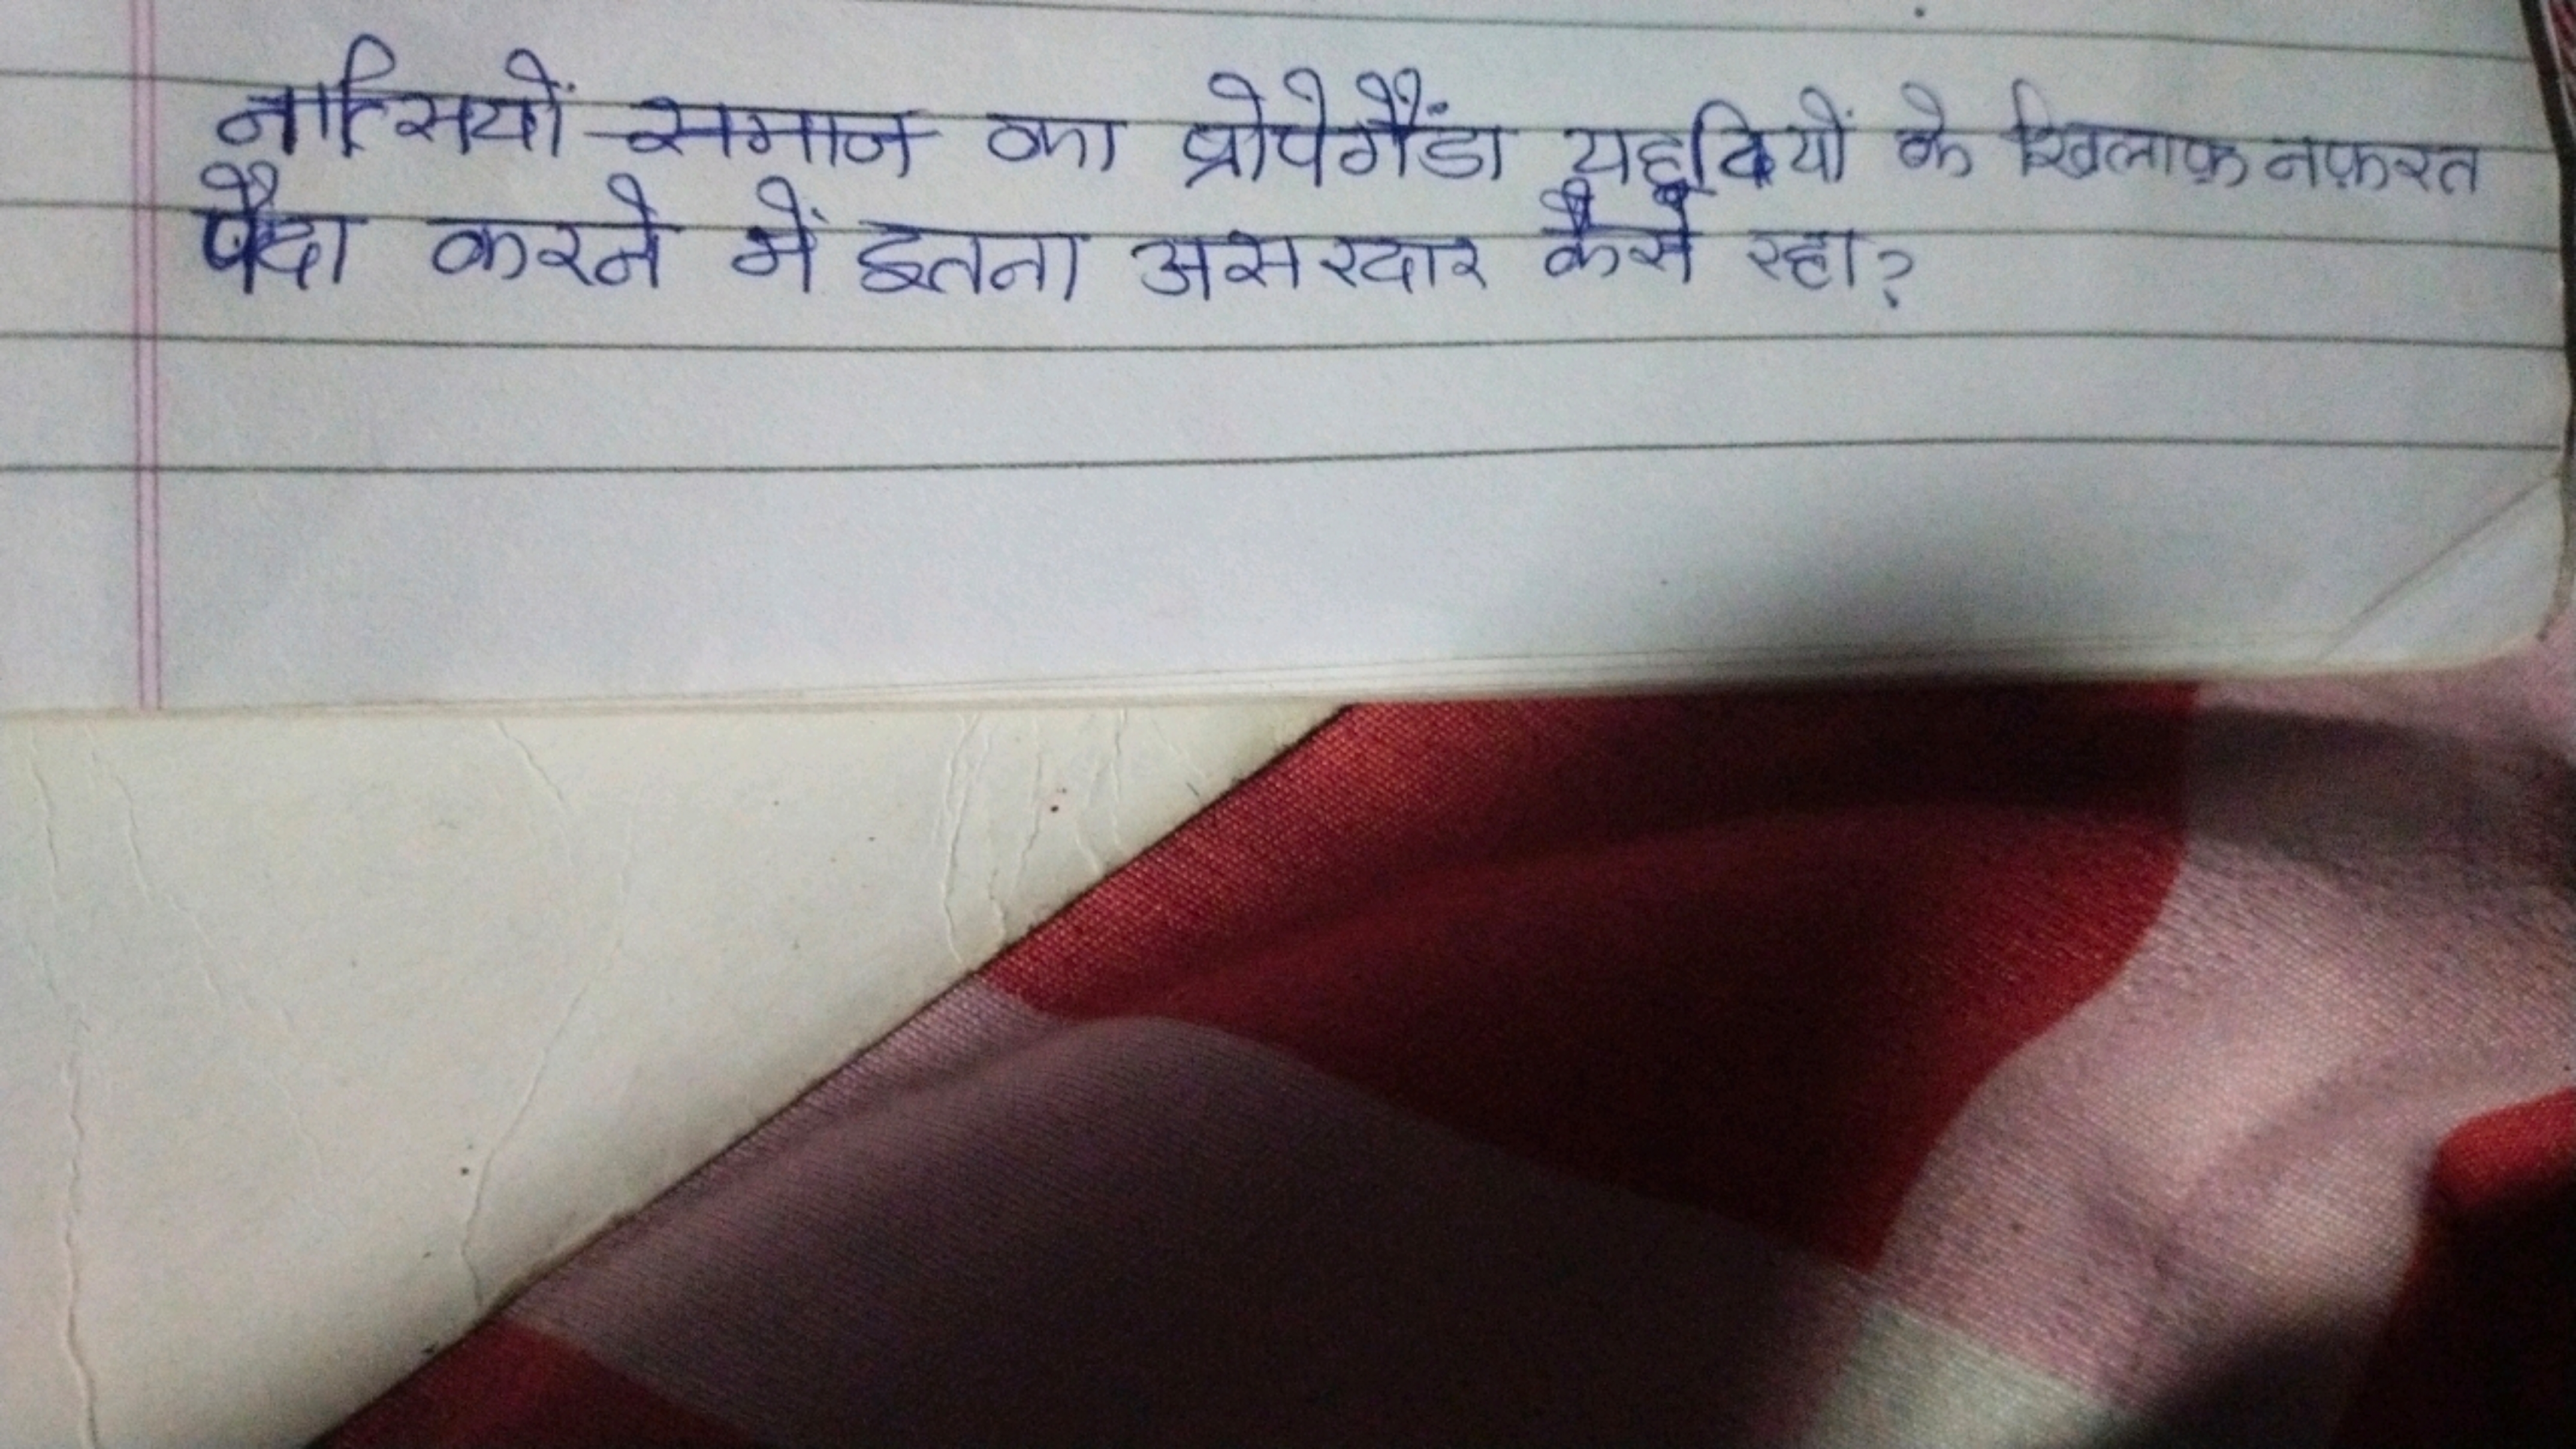 नात्सियों समाज का प्रोपेगैंडा यहूदियों के खिलाफ़ नफ़रत
पैदा करने में इतना असरदार कैसे रहा?